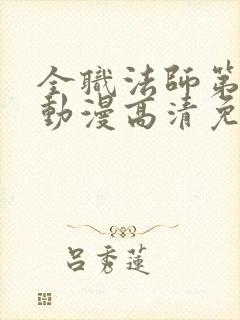 全職法師第
動漫高清免
呂秀蓮